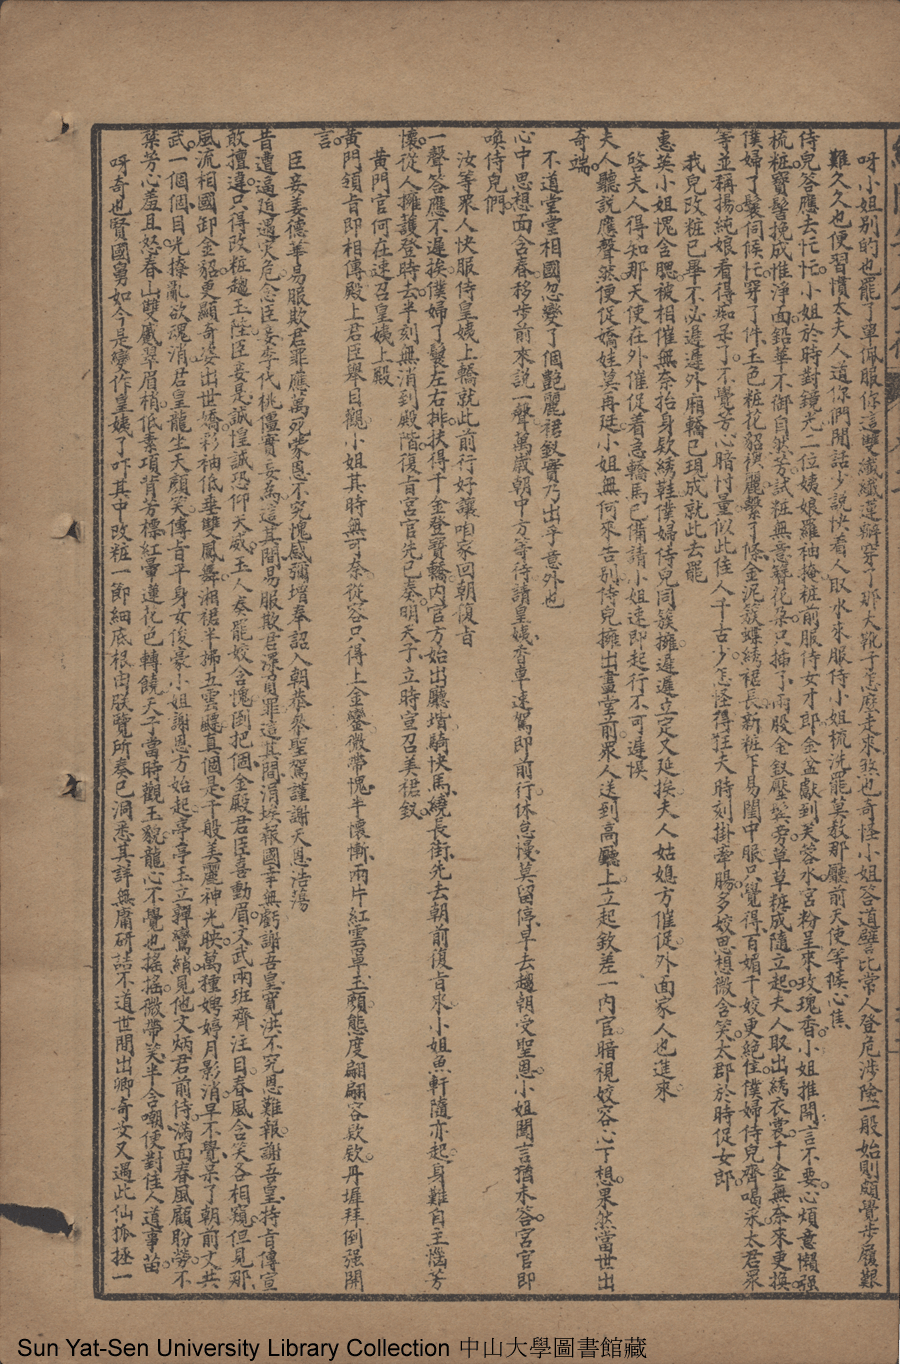 呀小姐別的也罷了單佩服你這雙纖纖蓮瓣穿了那大靴子怎麽走來煞也奇怪小姐答道譬比常人登危涉險一般始則頗覺步履艱
難久久也便習慣太夫人道你們閒話少說快看人取水來服侍小姐梳洗罷莫教那廳前天使等候心焦
侍兒答應去忙忙小姐於時對鏡光二位姨娘羅袖掩粧前服侍女才郎金盆獻到芙蓉水宮粉呈來玫瑰香小姐推開言不要心煩意懶强
梳粧寶髻挽成惟淨面鉛華不御自然芳試粧無意簪花朶只揷了兩股金釵壓鬢旁草草粧成隨立起夫人取出綉衣裳千金無奈來更換
僕婦丫鬟伺候忙穿了件玉色粧花貂襖麗繫了條金泥簇蝶綉裙長新粧下易閨中服只覺得百媚千姣更絕佳僕婦侍兒齊喝采太君眾
等並稱揚純娘看得痴呆了不覺芳心暗忖量似此佳人千古少怎怪得狂夫時刻掛牽腸多姣思想微含笑太郡於時促女郎
我兒改粧已畢不必遲遲外廂轎已現成就此去罷
惠英小姐愧含腮被相催無奈抬身欵綉鞋僕婦侍兒同簇擁遲遲立定又延挨夫人姑媳方催促外面家人也進來
啓夫人得知那天使在外催促着急轎馬已備請小姐速即起行不可遲悞
夫人聽說應聲然便促嬌娃莫再延小姐無何來告別侍兒擁出畫堂前眾人送到高廳上立起欽差一內官暗視姣容心下想果然當世出
奇端
不道堂堂相國忽變了個艷麗裙釵實乃出乎意外也
心中思想面含春移步前來說一聲萬歲朝中方等待請皇姨香車速駕即前行休怠慢莫留停早去趨朝受聖恩小姐聞言猶未答宮官即
喚侍兒們
汝等眾人快服侍皇姨上轎就此前行好讓咱家回朝復旨
一聲答應不遲挨僕婦丫鬟左右排扶得千金登寶轎內官方始出廳堦騎快馬繞長街先去朝前復旨來小姐魚軒隨亦起身難自主惱芳
懷從人擁護登時去半刻無消到殿階復旨宮官先已奏明天子立時宣召美裙釵
黃門官何在速召皇姨上殿
黃門領旨即相傳殿上君臣舉目觀小姐其時無可奈從容只得上金鑾微帶愧半懷慚兩片紅雲罩玉顏態度翩翩容欵欵丹墀拜倒强開
言
臣妾姜德華易服欺君罪應萬死蒙恩不究愧感彌增奉詔入朝恭叅聖駕謹謝天恩浩蕩
昔遭逼迫遇災危念臣妾李代桃僵實妄為這其間易服欺君深負罪這其間涓埃報國幸無虧謝吾皇寬洪不究恩難報謝吾皇持旨傳宣
敢擅違只得改粧趨玉陛臣妾是誠惶誠恐仰天威玉人奏罷姣含愧倒把個金殿君臣喜動眉文武兩班齊注目春風含笑各相窺但見那
風流相國卸金貂更顯奇姿出世嬌彩袖低垂雙鳳舞湘裙半拂五雲飄真個是千般美麗神光映萬種娉婷月影消早不覺呆了朝前文共
武一個個目光撩亂欲魂消君皇龍坐天顏笑傳旨平身女俊豪小姐謝恩方始起亭亭玉立嚲鸞綃見他文炳君前侍滿面春風顧盼勞不
禁芳心羞且怒春山雙蹙翠眉梢低素項背芳標紅暈蓮花色轉饒天子當時觀玉貌龍心不覺也搖搖微帶笑半含嘲便對佳人道事苗
呀奇也賢國舅如今是變作皇姨了吓其中改粧一節細底根由朕覽所奏已洞悉其詳無庸研詰不道世間出卿奇女又遇此仙狐拯一
Sun Yat-Sen University Library Collection 中山大學圖書館藏